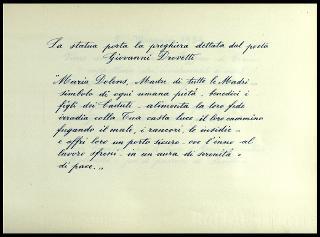 La statua porta la preghiera dettata dal poeta
Giovanni Drovetti
"Maria Dolens, Madre di tutte le Madri
simbolo di ogni umana pietà - benedici i
figli dei Caduti - alimenta la loro fede
irradia colla Tua casta luce il loro cammino
fugando il male, i rancori, le insidie -
e offri loro un porto sicuro - ove l'inno al
lavoro sfoci - in un aura di serenità e
di pace."